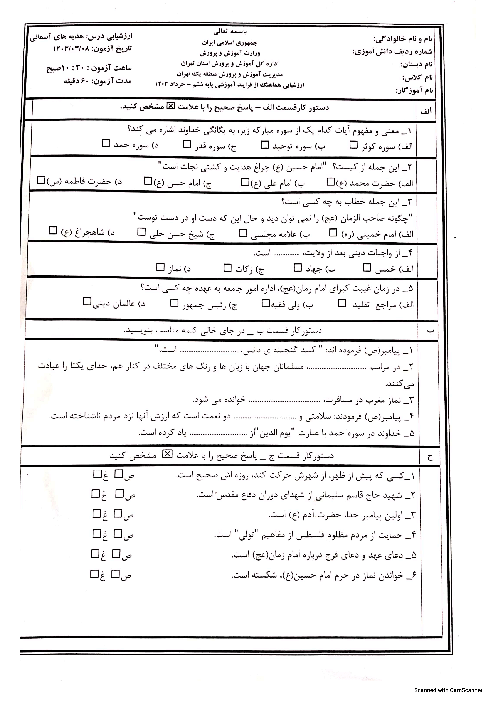 باسمه تعالی
جمهوری اسلامی ایران
وزارت آموزش و پرورش
اداره کل آموزش و پرورش استان تهران
مدیریت آموزش و پرورش منطقه یک تهران
ارزشیابی هماهنگ از فرایند آموزشی پایه ششم – خرداد ۱۴۰۳
نام و نام خانوادگی:
شماره ردیف دانش آموزی:
نام دبستان:
نام کلاس:
نام آموزگار:
ارزشیابی درس: هدیه های آسمانی
تاریخ آزمون: ۱۴۰۳/۰۳/۰۸
ساعت آزمون: ۱۰:۳۰ صبح
مدت آزمون: ۶۰ دقیقه
الف
دستور کار قسمت الف – پاسخ صحیح را با علامت ☒ مشخص کنید.
۱_ معنی و مفهوم آیات کدام یک از سوره مبارکه زیر، به یگانگی خداوند اشاره می کند؟
الف) سوره کوثر □ ب) سوره توحید □ ج) سوره قدر □ د) سوره حمد □
۲_ این جمله از کیست؟ "امام حسین (ع) چراغ هدایت و کشتی نجات است"
الف) حضرت محمد (ص) □ ب) امام علی (ع) □ ج) امام حسن (ع) □ د) حضرت فاطمه (س) □
۳_ این جمله خطاب به چه کسی است؟
"چگونه صاحب الزمان (عج) را نمی توان دید و حال این که دست او در دست توست"
الف) امام خمینی (ره) □ ب) علامه مجلسی □ ج) شیخ حسن حلی □ د) شاهچراغ (ع) □
۴_ از واجبات دینی بعد از ولایت، ............ است.
الف) خمس □ ب) جهاد □ ج) زکات □ د) نماز □
۵_ در زمان غیبت کبرای امام زمان(عج)، اداره امور جامعه به عهده چه کسی است؟
الف) مراجع تقلید □ ب) ولی فقیه □ ج) رئیس جمهور □ د) عالمان دینی □
ب
دستور کار قسمت ب _ در جای خالی کلمه مناسب بنویسید.
۱_ پیامبر(ص) فرموده اند: " کلید گنجینه ی دانش، .................... است."
۲_ در مراسم .................... مسلمانان جهان با زبان ها و رنگ های مختلف در کنار هم، خدای یکتا را عبادت
می کنند.
۳_ نماز مغرب در مسافرت، .................... خوانده می شود.
۴_ پیامبر(ص) فرمودند: سلامتی و .................... دو نعمت است که ارزش آنها نزد مردم ناشناخته است
۵_ خداوند در سوره حمد با عبارت "یوم الدین"از .................... یاد کرده است.
ج
دستور کار قسمت ج _ پاسخ صحیح را با علامت ☒ مشخص کنید
۱_کسی که پیش از ظهر، از شهرش حرکت کند، روزه اش صحیح است. ص□ غ□
۲_ شهید حاج قاسم سلیمانی از شهدای دوران دفاع مقدس است. ص□ غ□
۳_ اولین پیامبر خدا، حضرت آدم (ع) است. ص□ غ□
۴_ حمایت از مردم مظلوم فلسطین از مفاهیم "تولی" است. ص□ غ□
۵_ دعای عهد و دعای فرج درباره امام زمان(عج) است. ص□ غ□
۶_ خواندن نماز در حرم امام حسین(ع)، شکسته است. ص□ غ□
Scanned with CamScanner